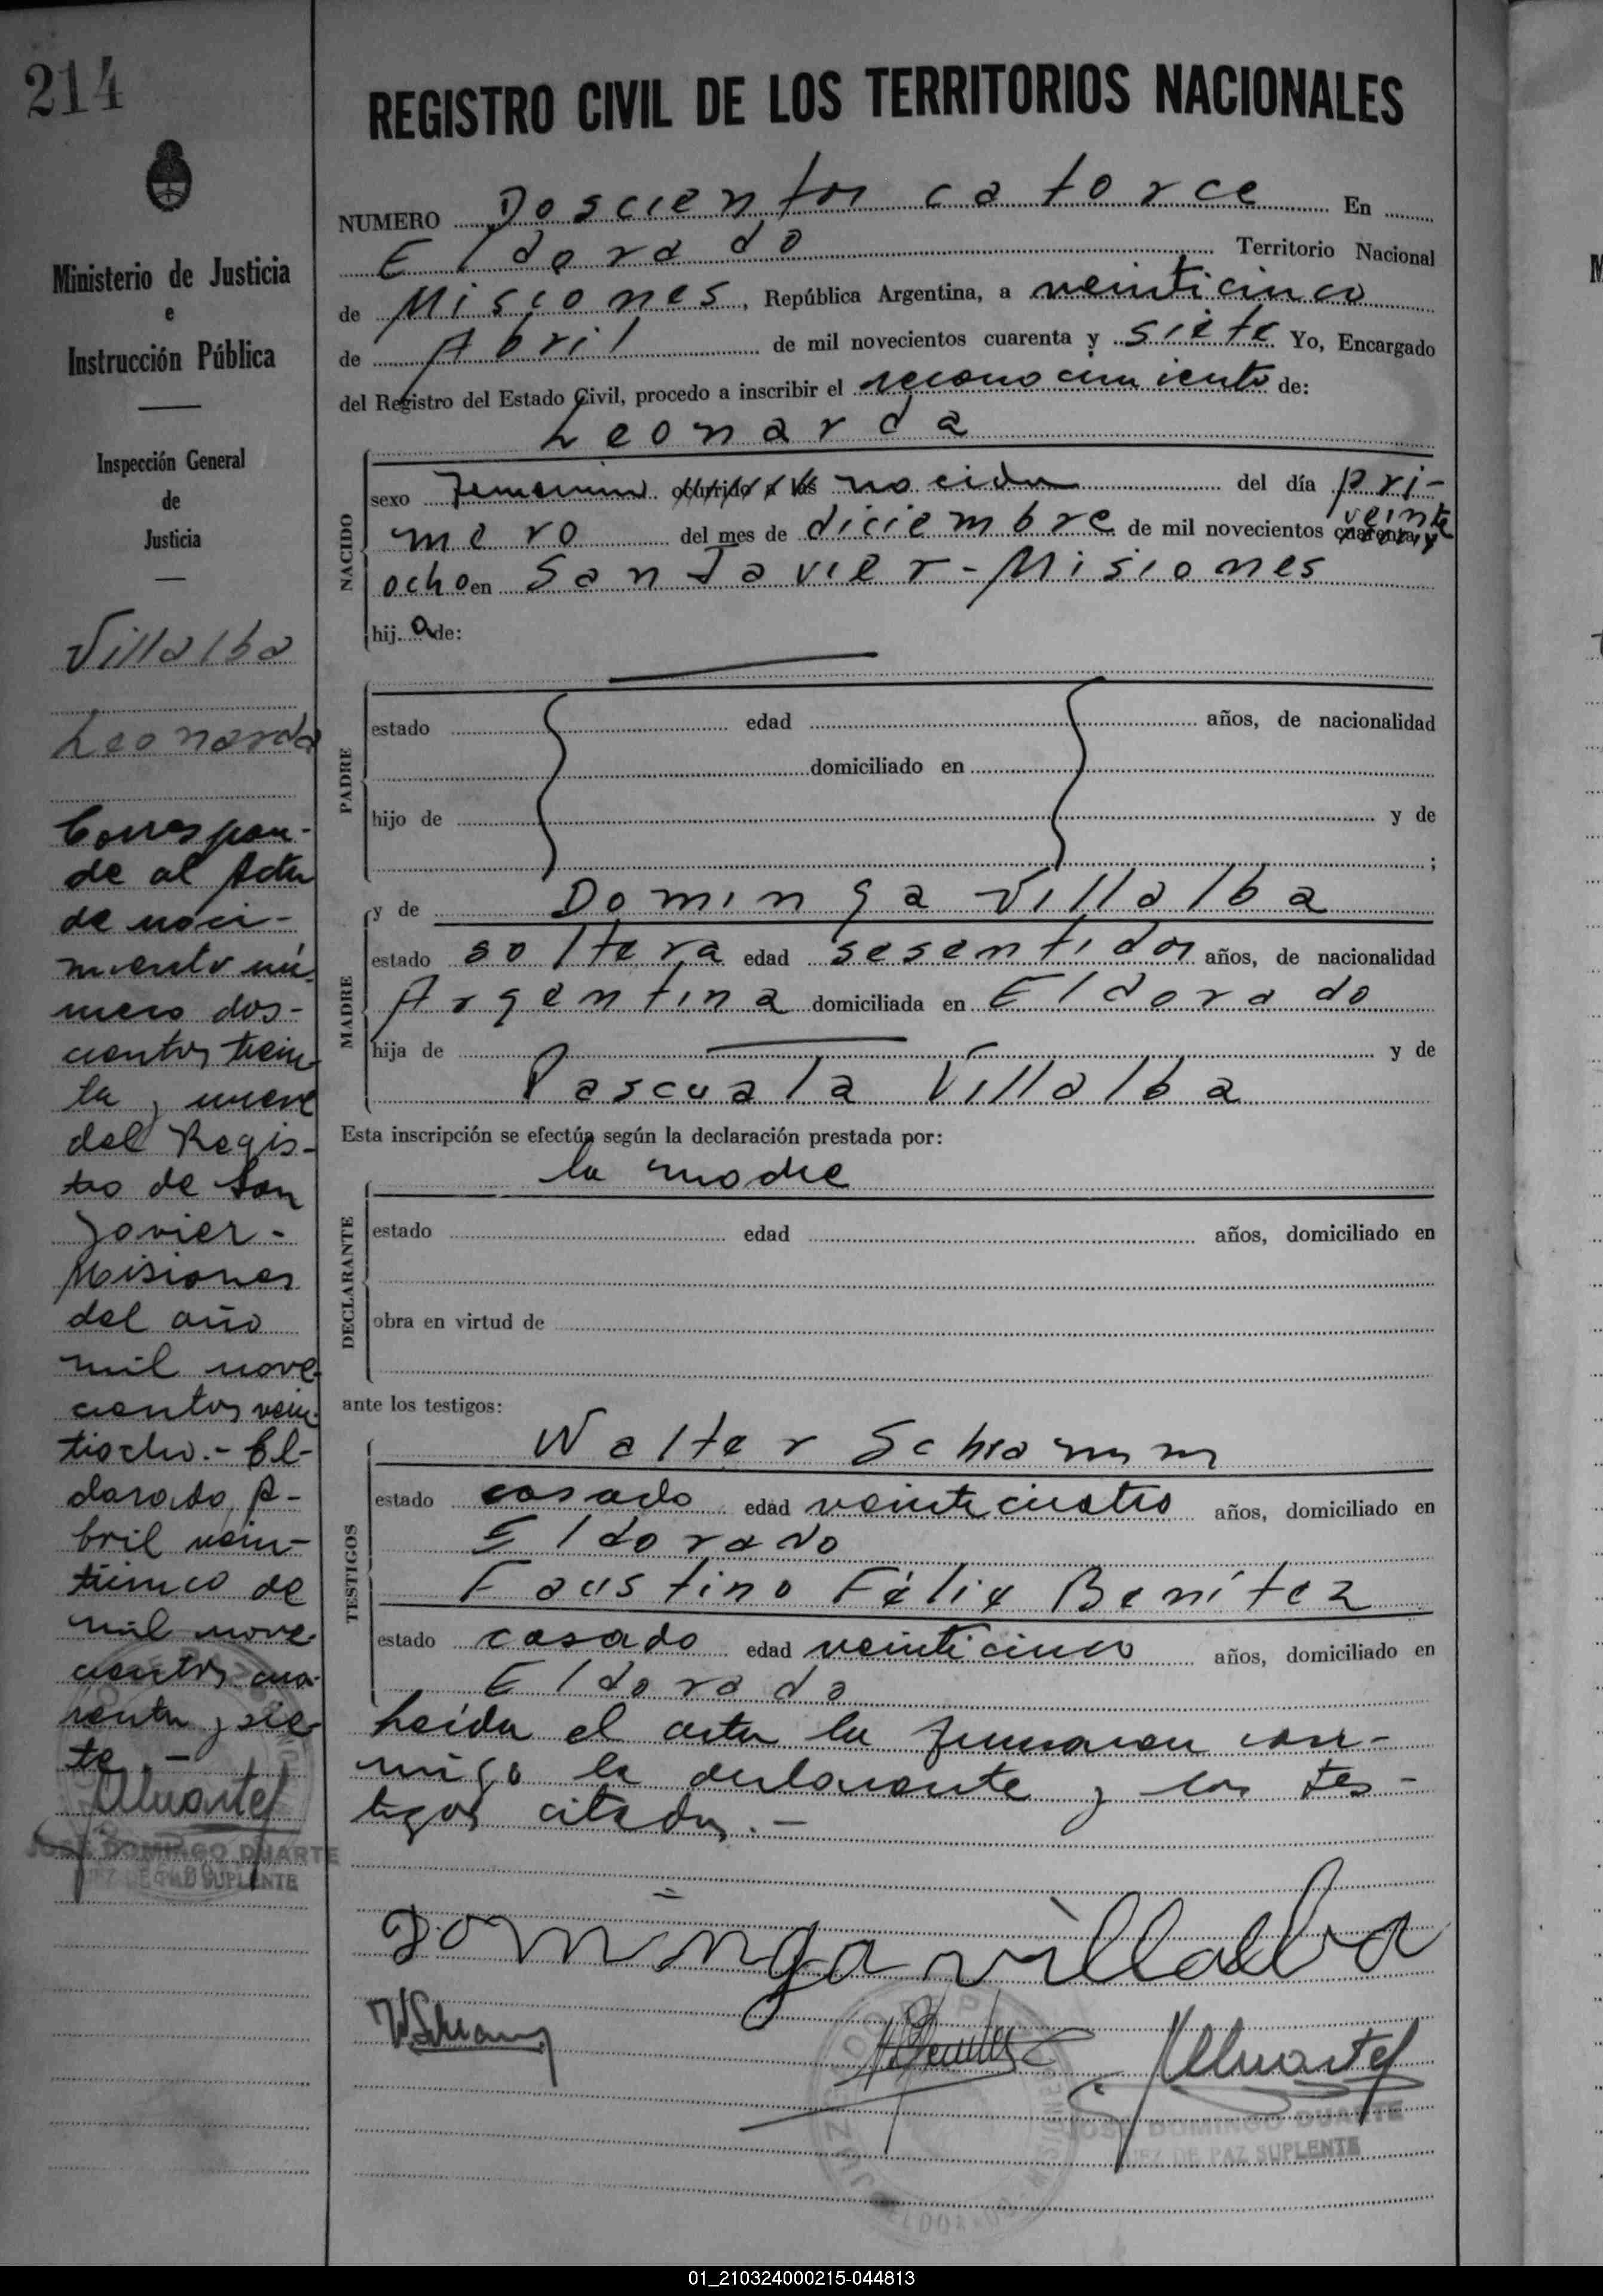 214
Ministerio de Justicia
e
Instrucción Pública
Inspección General
de
Justicia
Villalba
Leonarda
Correspon-
de al Acta
de naci-
miento nú-
mero dos-
cientos trein
ta y nueve
del Regis-
tro de San
Javier -
Misiones
del año
mil nove
cientos vein-
tiocho.- El-
dorado, A-
bril vein-
ticinco de
mil nove-
cientos cua-
renta y sie-
te. -
JOSÉ DOMINGO DUARTE
JUEZ DE PAZ SUPLENTE
REGISTRO CIVIL DE LOS TERRITORIOS NACIONALES
NUMERO Doscientos catorce En
Eldorado Territorio Nacional
de Misiones, República Argentina, a veinticinco
de Abril de mil novecientos cuarenta y siete Yo, Encargado
del Registro del Estado Civil, procedo a inscribir el reconocimiento de:
Leonarda
NACIDO
sexo Femenino ocurrido a las nacida del día pri-
mero del mes de diciembre de mil novecientos cuarenta y veinte
ocho en San Javier - Misiones
hij a de:
PADRE
estado edad años, de nacionalidad
domiciliado en
hijo de y de
;
y de Dominga Villalba
MADRE
estado soltera edad sesentidos años, de nacionalidad
Argentina domiciliada en Eldorado
hija de y de
Pascuala Villalba
Esta inscripción se efectúa según la declaración prestada por:
la madre
DECLARANTE
estado edad años, domiciliado en
obra en virtud de
ante los testigos:
Walter Schramm
TESTIGOS
estado casado edad veinticuatro años, domiciliado en
Eldorado
Faustino Félix Benítez
estado casado edad veinticinco años, domiciliado en
Eldorado
Leída el acta la firmaron con-
migo la declarante y los tes-
tigos citados.-
Dominga villalba
WSchramm
JOSÉ DOMINGO DUARTE
JUEZ DE PAZ SUPLENTE
01_210324000215-044813